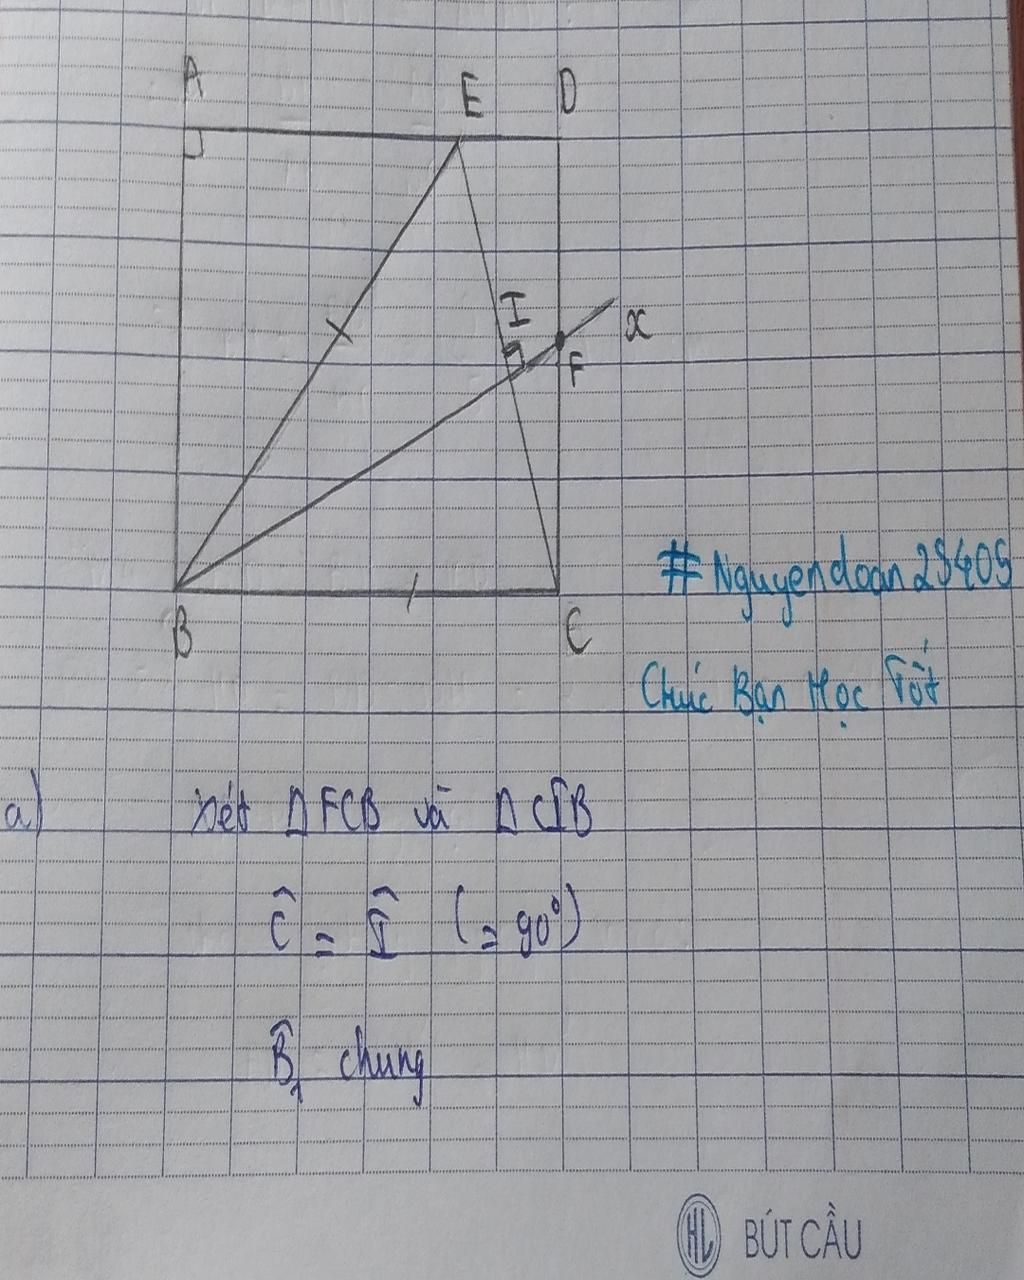 A
E
D
I
x
F
B
C
#Nguyendoan23405
Chúc Bạn Học Tốt
a) Xét Δ FCB và Δ CIB
Ĉ = Î (= 90°)
B̂₁ chung
HL BÚT CẦU